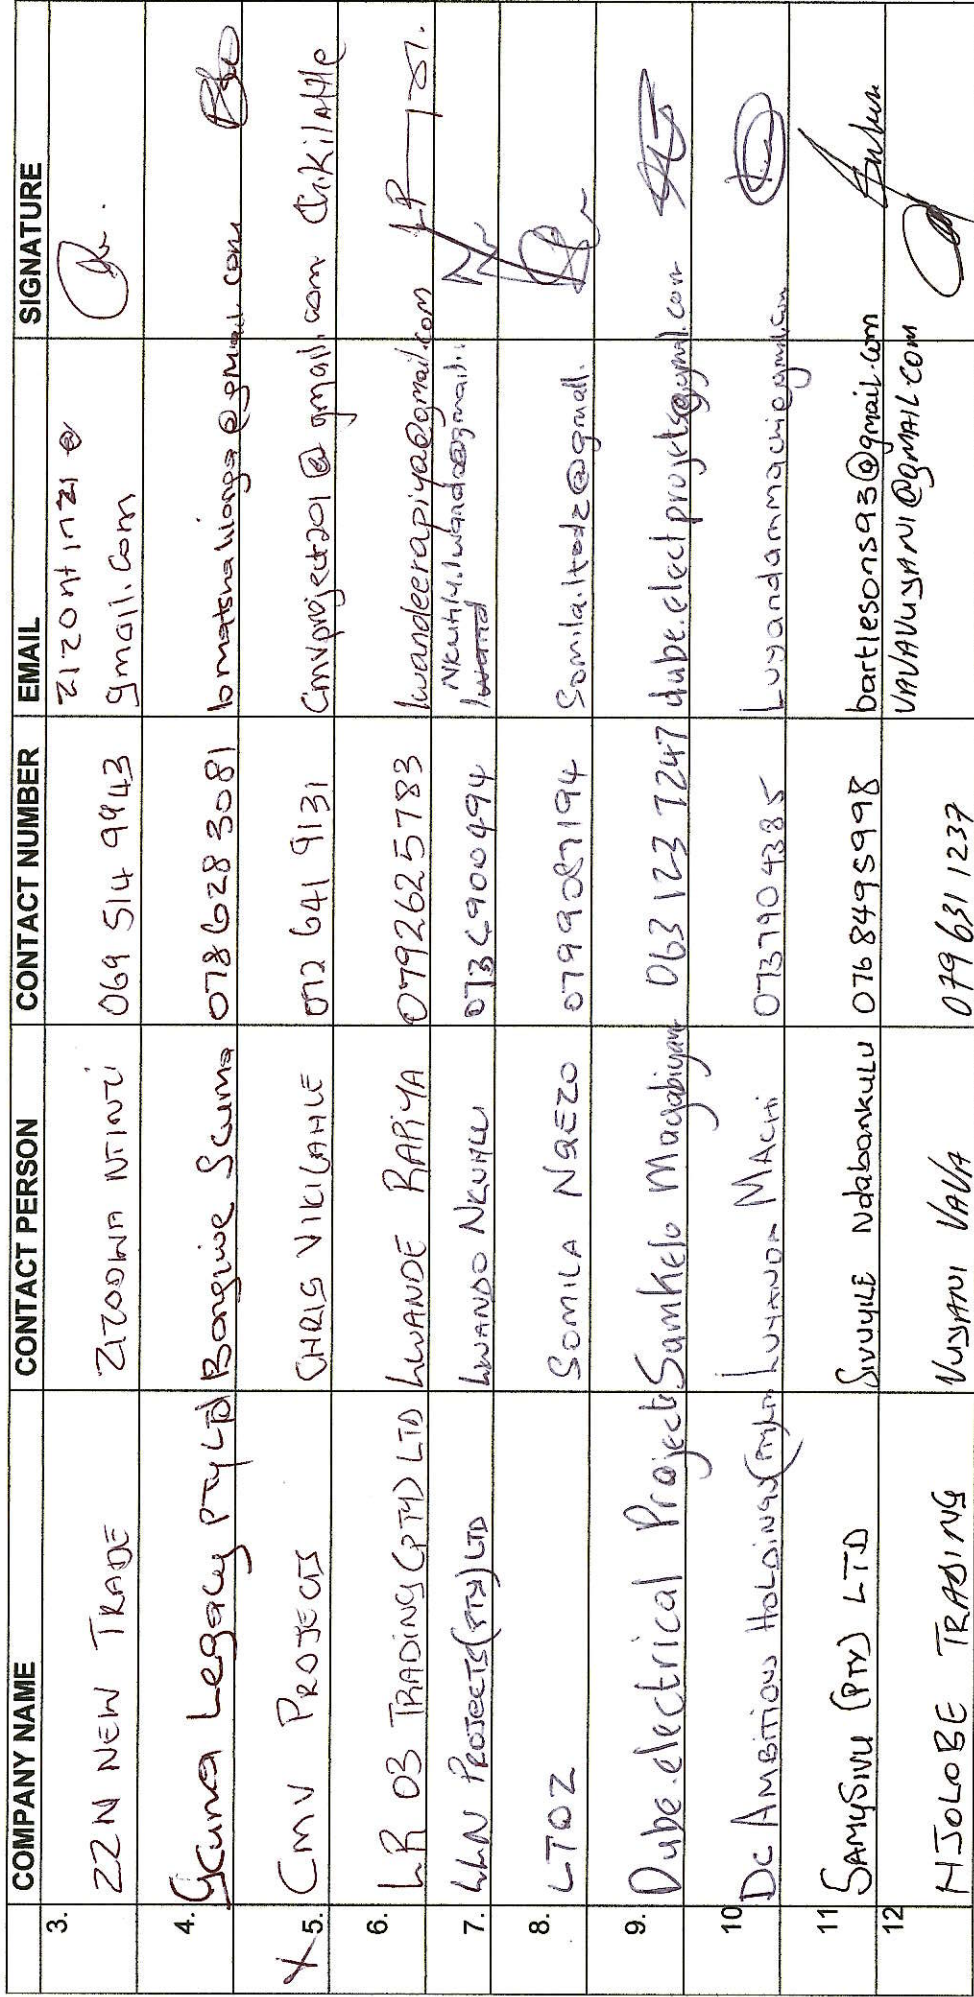 COMPANY NAME CONTACT PERSON CONTACT NUMBER EMAIL SIGNATURE
3. ZZN NEW TRADE 069 514 9943 zizontinzi @
gmail.com
4. Gcuma Legacy PTY LTD Bongiwe Gcuma 078 628 3081 @gmail.com
X 5. CMV PROJECTS CHRIS VIKILAHLE 072 641 9131 Cmvproject201@gmail.com
6. LR 03 TRADING (PTY) LTD LWANDE RAPIYA 0792625783 lwandeerapiya@gmail.com
7. LLN PROJECTS (PTY) LTD LWANDO NKUHLU Nkuhlu.lwando@gmail.
lwand
8. LTQZ SOMILA NQEZO 0799087194 Somila.ltqdz@gmail.
9. Dube.electrical Projects Samkelo 063 123 7247 dube.electprojets@gmail.com
10 Dc AMBITIOUS HOLDINGS LUYANDA MACHI 0737904385 Luyandammachi@gmail.com
11 SAMYSIVU (PTY) LTD SIVUYILE Ndabankulu 076 8495998 bartlesons93@gmail.com
12 NJOLOBE TRADING VUYANI VAVA 079 631 1237 VAVAVUYANI@GMAIL.COM